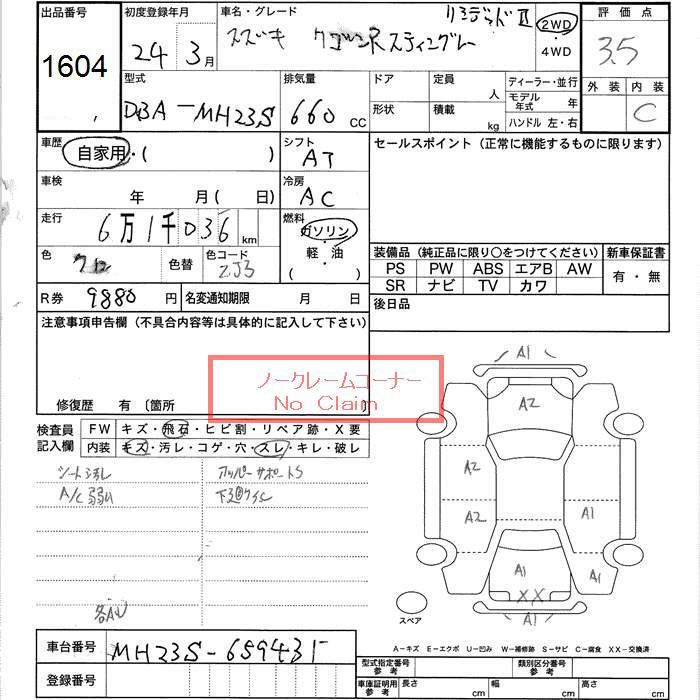 出品番号 初度登録年月 車名・グレード リミテッドⅡ 2WD 評価点
1604 24 年 3月 スズキ ワゴンRスティングレー ・4WD 3.5
外装 内装
C
型式 排気量 ドア 定員 人 ディーラー・並行
DBA-MH23S 660 CC 形状 積載 kg モデル年式 年
ハンドル 左・右
車歴 自家用・( ) シフト AT セールスポイント(正常に機能するものに限ります)
車検 年 月( 日) 冷房 AC
走行 6万1千036km 燃料 ガソリン
軽・油
( )
色 クロ 色替 色コード ZJ3
装備品(純正品に限り○をつけてください) 新車保証書
PS PW ABS エアB AW 有・無
SR ナビ TV カワ
R券 9880 円 名変通知期限 月 日 後日品
注意事項申告欄(不具合内容等は具体的に記入して下さい)
ノークレームコーナー
No Claim
修復歴 有〔箇所
検査員 FW キズ・飛石・ヒビ割・リペア跡・X要
記入欄 内装 キズ・汚レ・コゲ・穴・スレ・キレ・破レ
シート汚れ アッパーサポートS
A/C弱い
A1
A2
A2
A2 A1
A1 A1
XX
A1
スペア
A-キズ E-エクボ U-凹み W-補修跡 S-サビ C-腐食 XX-交換済
車台番号 MH23S-659431
登録番号
型式指定番号 参考 類別区分番号 参考
車庫証明用 参考 長さ cm 幅 cm 高さ cm